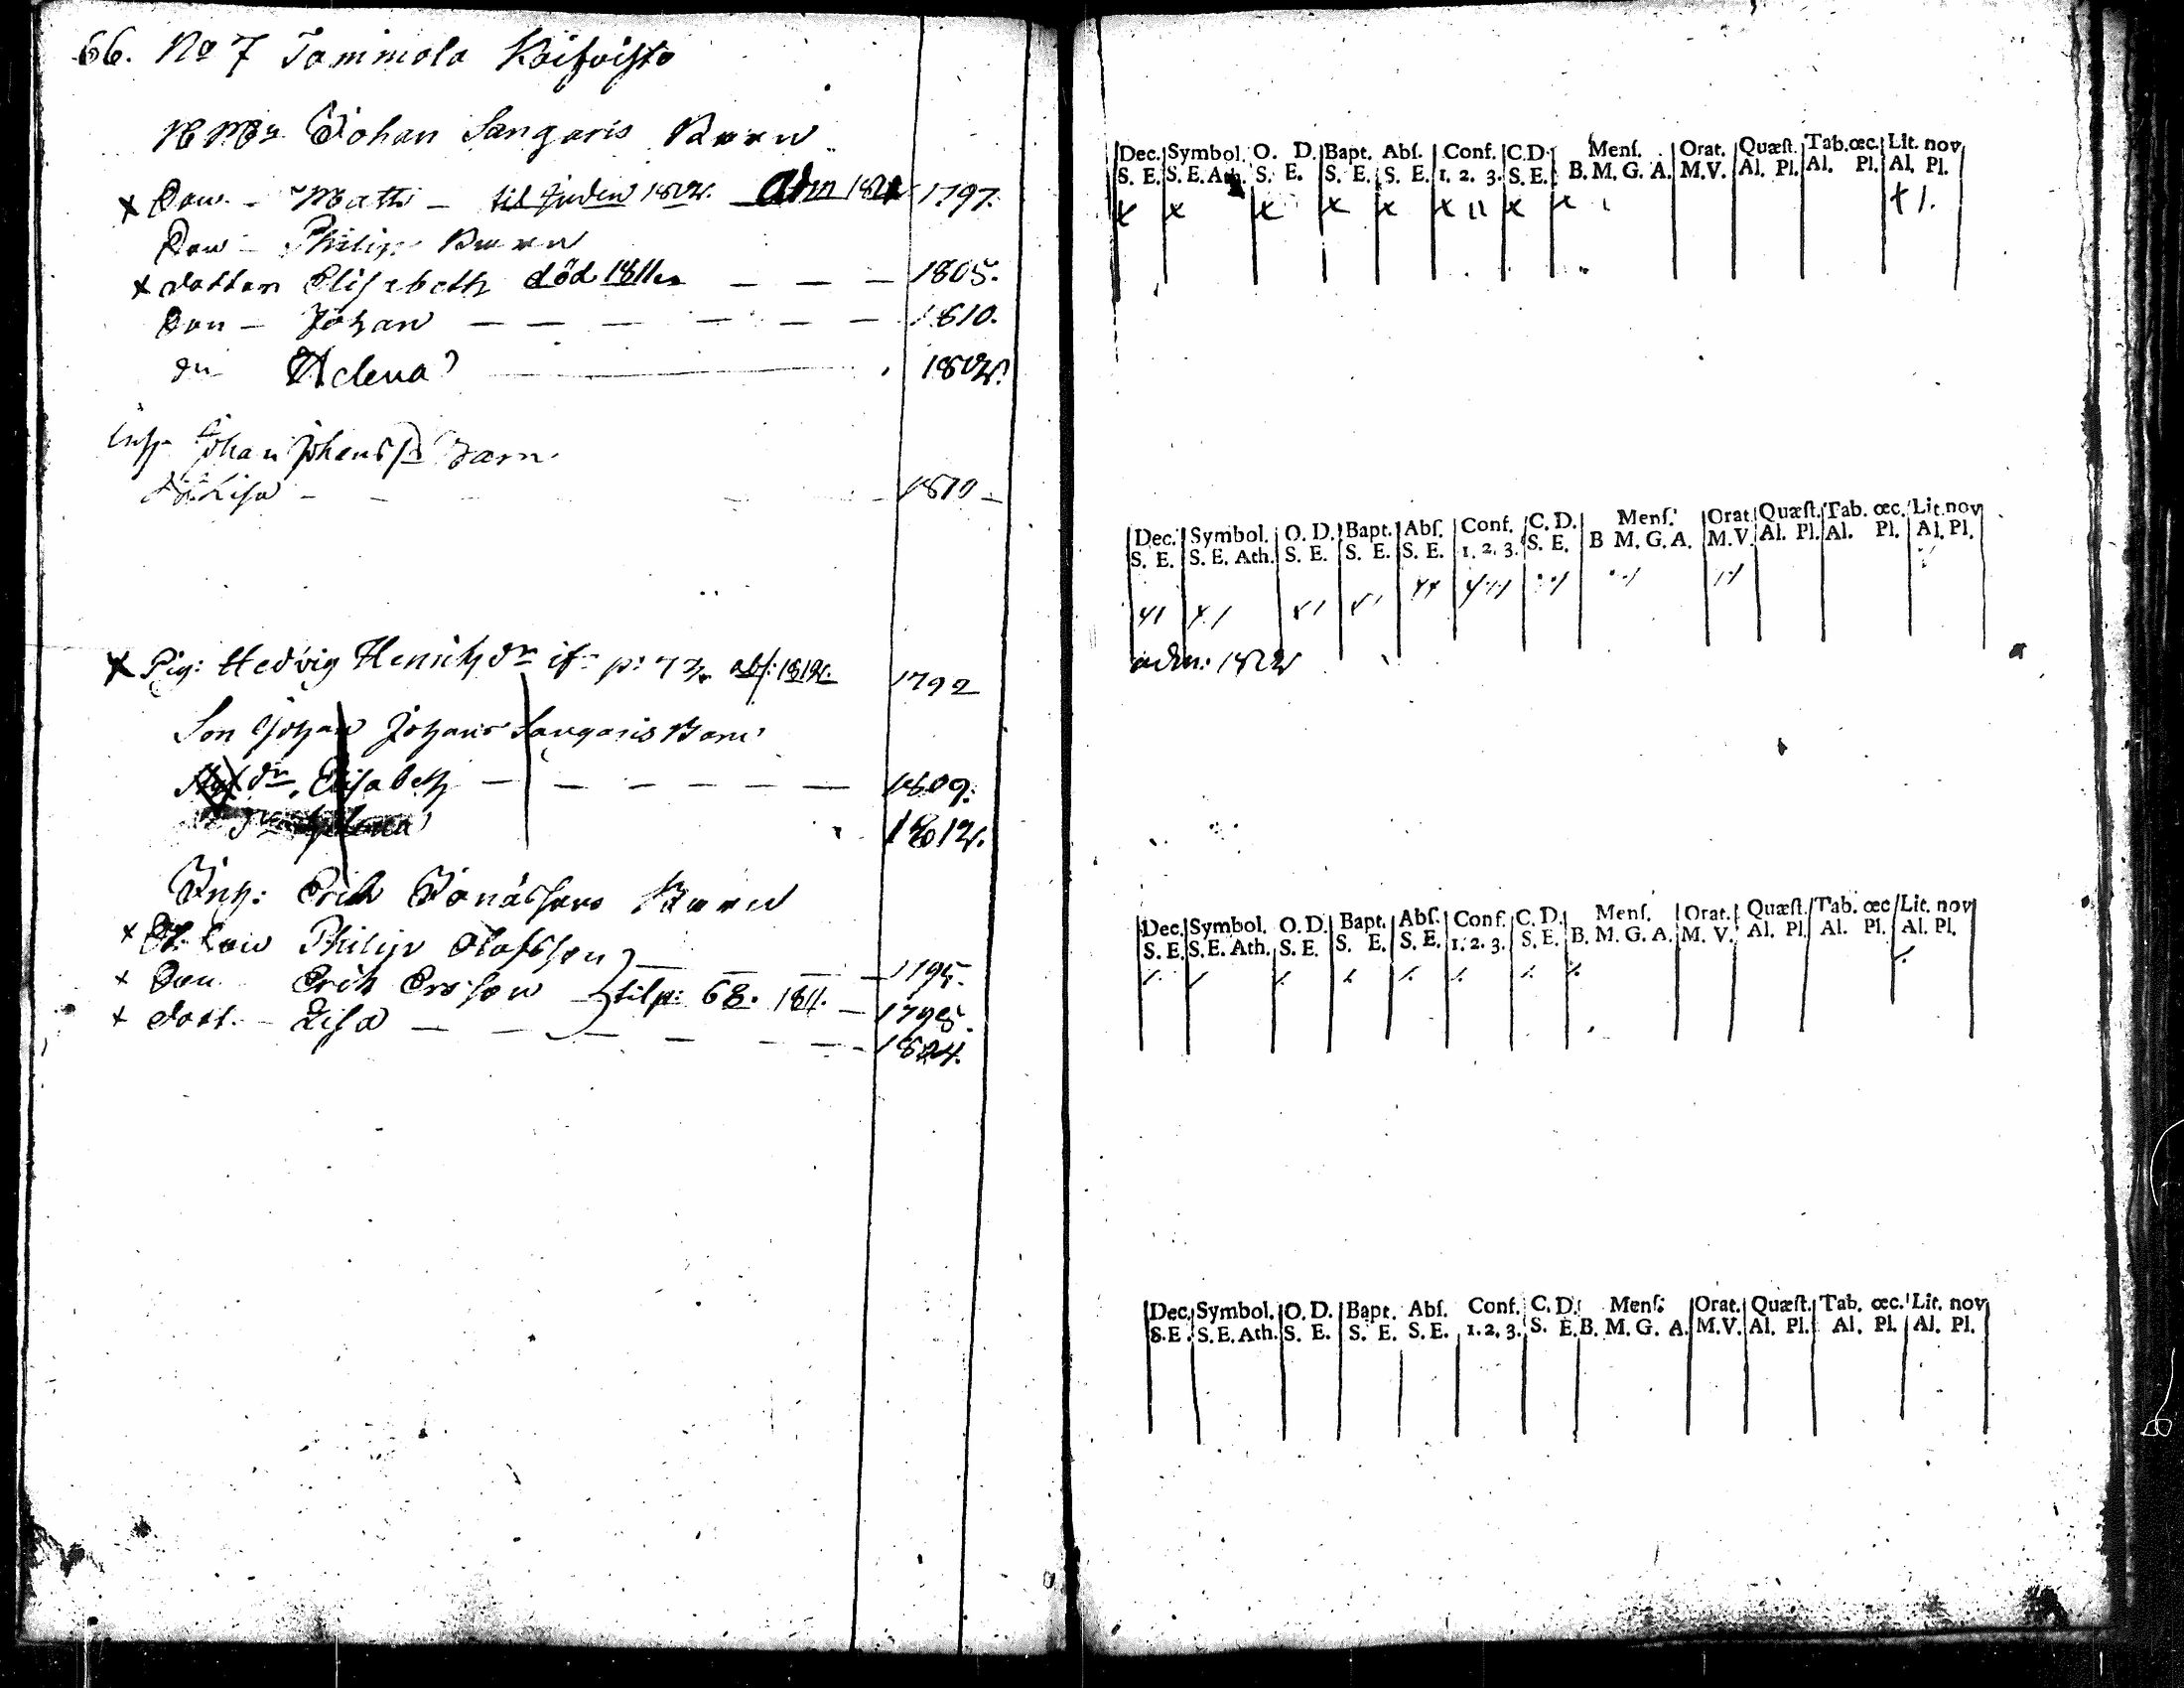 66. No 7 Tammola Koifvisto
Johan Sangaris Barn
x Son - Matts - til 1812. adm 1812 1797.
Son - Philip Barn
x dotter Elisabeth död 1811 — — — 1805.
Son - Johan — — — — — — 1810.
dr Helena 1812.
Inh. Johan Johans Barn
Lisa - - - - 1810 -
x Pig: Hedvig Henrichsdr if: p: 73. 1812. 1792
Son Johan Johans Sangaris Barn
dr. Elisabeth — — — — — — 1809.
Helena 1812.
Inh: Erich Jonassons Barn
x Philip Olofsson — — — — 1795.
x Son Erich Ersson til p: 68. 1811. — 1795.
x dott. - Lisa — — — — — — 1804.
Dec. Symbol. O. D. Bapt. Abſ. Conf. C.D. Menſ. Orat. Quæſt. Tab.œc. Lit. nov
S. E. S. E. Ath. S. E. S. E. S. E. 1. 2. 3. S. E. B. M. G. A. M.V. Al. Pl. Al. Pl. Al. Pl.
x x x x x x 11 x x 1 x 1.
Dec. Symbol. O. D. Bapt. Abſ. Conf. C. D. Menſ. Orat. Quæſt. Tab. œc. Lit. nov
S. E. S. E. Ath. S. E. S. E. S. E. 1. 2. 3. S. E. B M. G. A. M.V. Al. Pl. Al. Pl. Al. Pl.
adm: 1812
Dec. Symbol. O. D. Bapt. Abſ. Conf. C. D. Menſ. Orat. Quæſt. Tab. œc Lit. nov
S. E. S. E. Ath. S. E. S. E. S. E. 1. 2. 3. S. E. B. M. G. A. M. V. Al. Pl. Al. Pl. Al. Pl.
Dec. Symbol. O. D. Bapt. Abſ. Conf. C. D. Menſ. Orat. Quæſt. Tab. œc. Lit. nov
S. E. S. E. Ath. S. E. S. E. S. E. 1. 2. 3. S. E. B. M. G. A. M.V. Al. Pl. Al. Pl. Al. Pl.